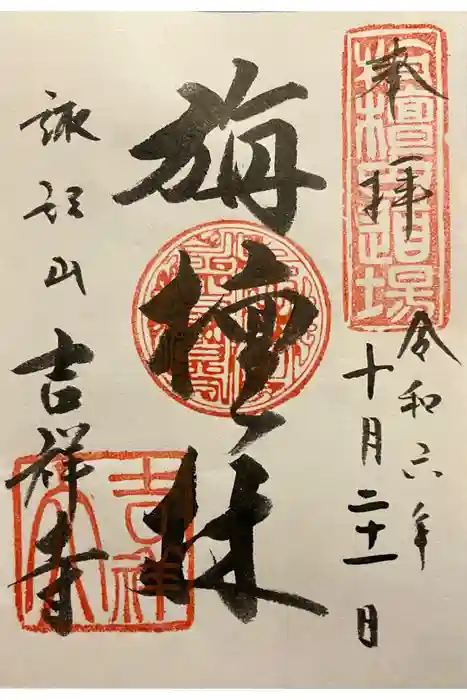 奉拝
栴檀林道場
令和六年
十月二十一日
旃檀林
諏訪山 吉祥寺